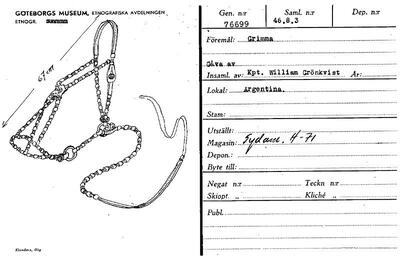 GÖTEBORGS MUSEUM, ETNOGRAFISKA AVDELNINGEN
ETNOGR.
67 cm
Elanders, Gbg
Gen. n:r 76699
Saml. n:r 46.8.3
Dep. n:r
Föremål: Grimma
Gåva av
Insaml. av: Kpt. William Grönkvist År:
Lokal: Argentina.
Stam:
Utställt:
Magasin: Sydam. H-71
Depon.:
Byte till:
Negat n:r Teckn n:r
Skiopt. „ Kliché „
Publ.